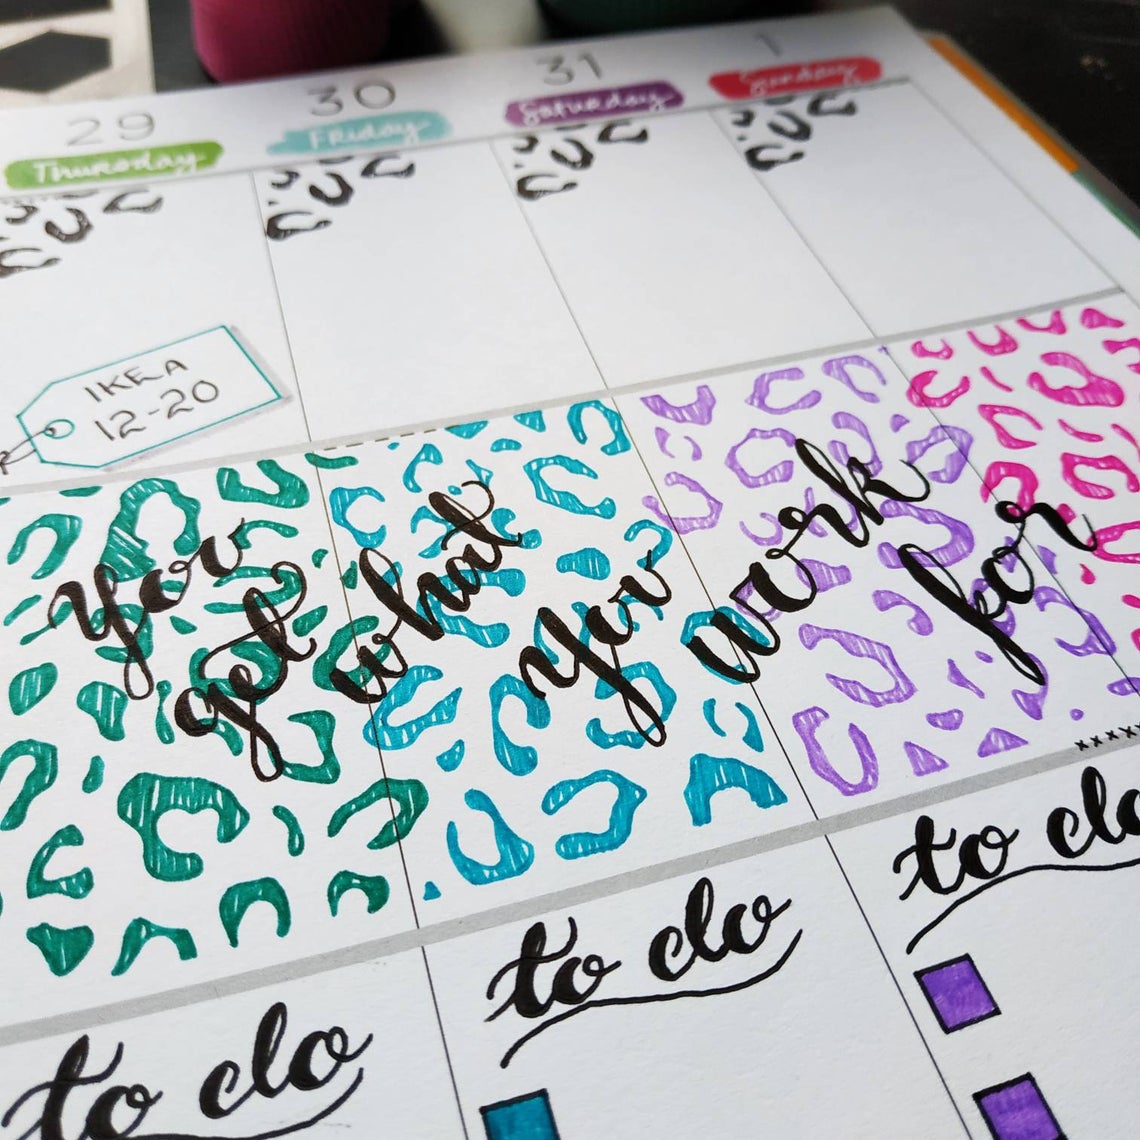 29 30 31 1
Thursday Friday Saturday Sunday
IKEA
12-20
you get what you work for
to do
to do
to do